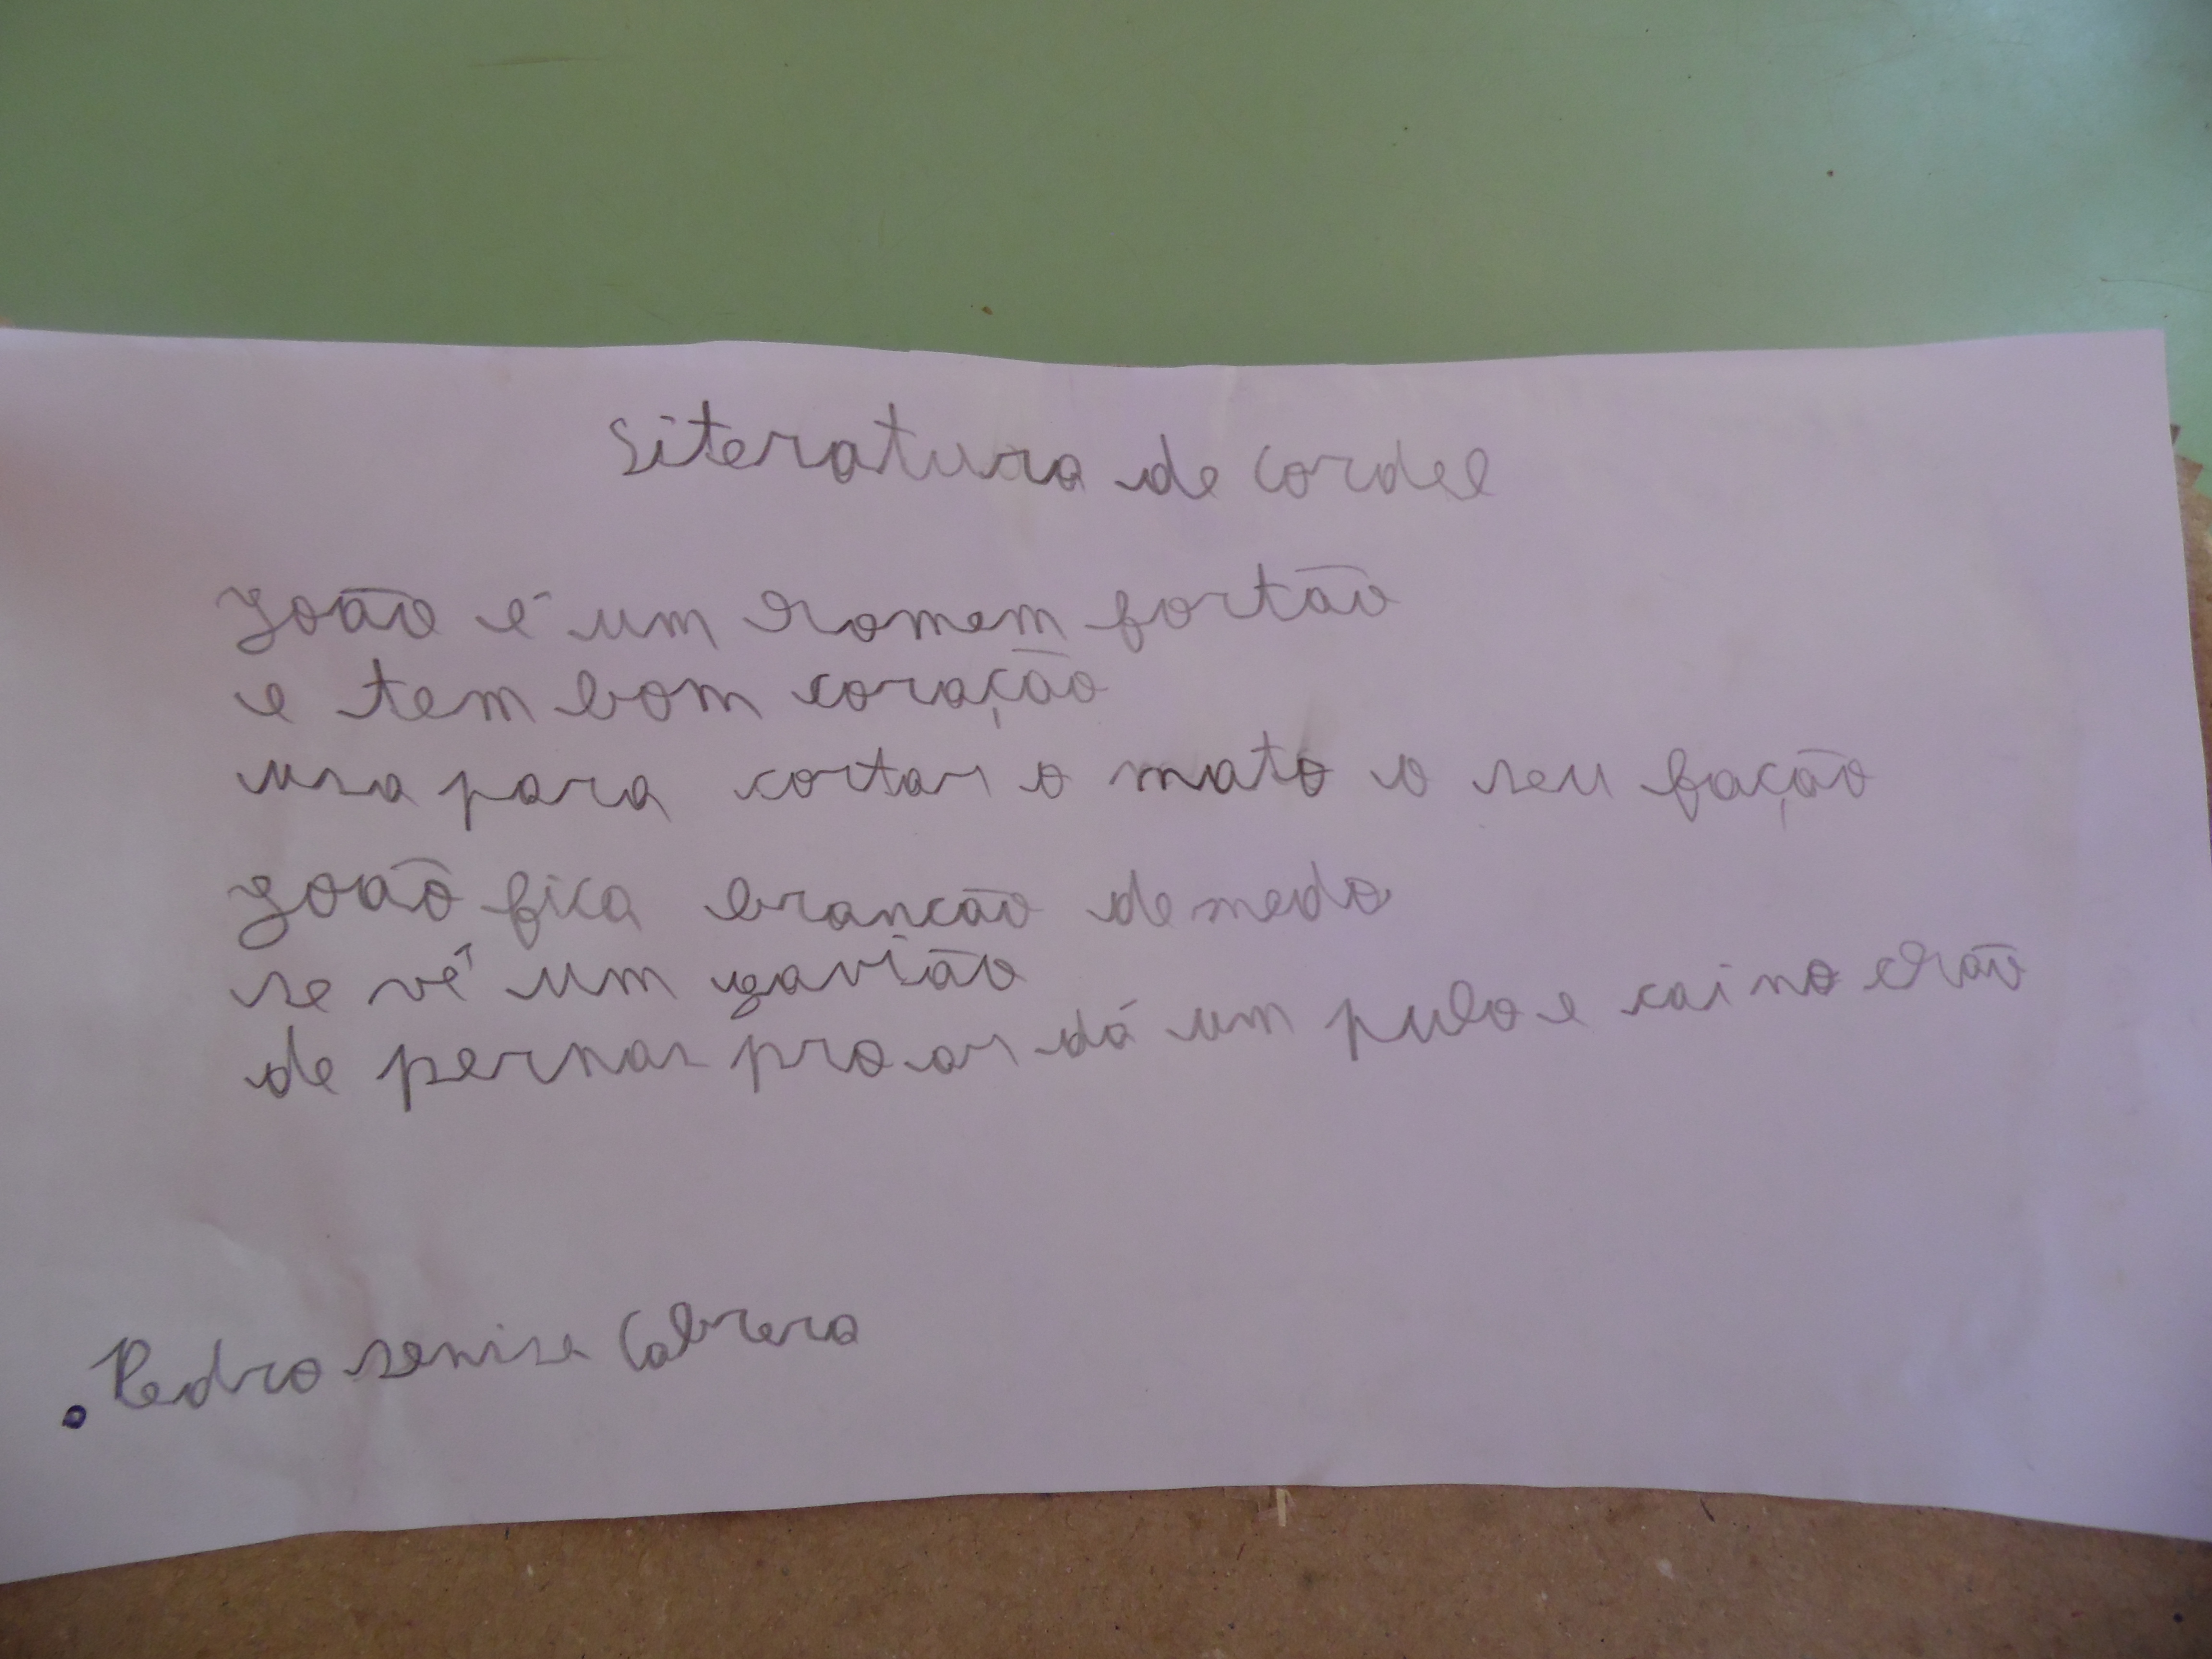 Literatura de cordel
João é um homem fortão
e tem bom coração
usa para cortar o mato o seu fação
João fica brancão de medo
se vê um gavião
de pernas pro ar dá um pulo e cai no chão
Pedro senise Cabrera